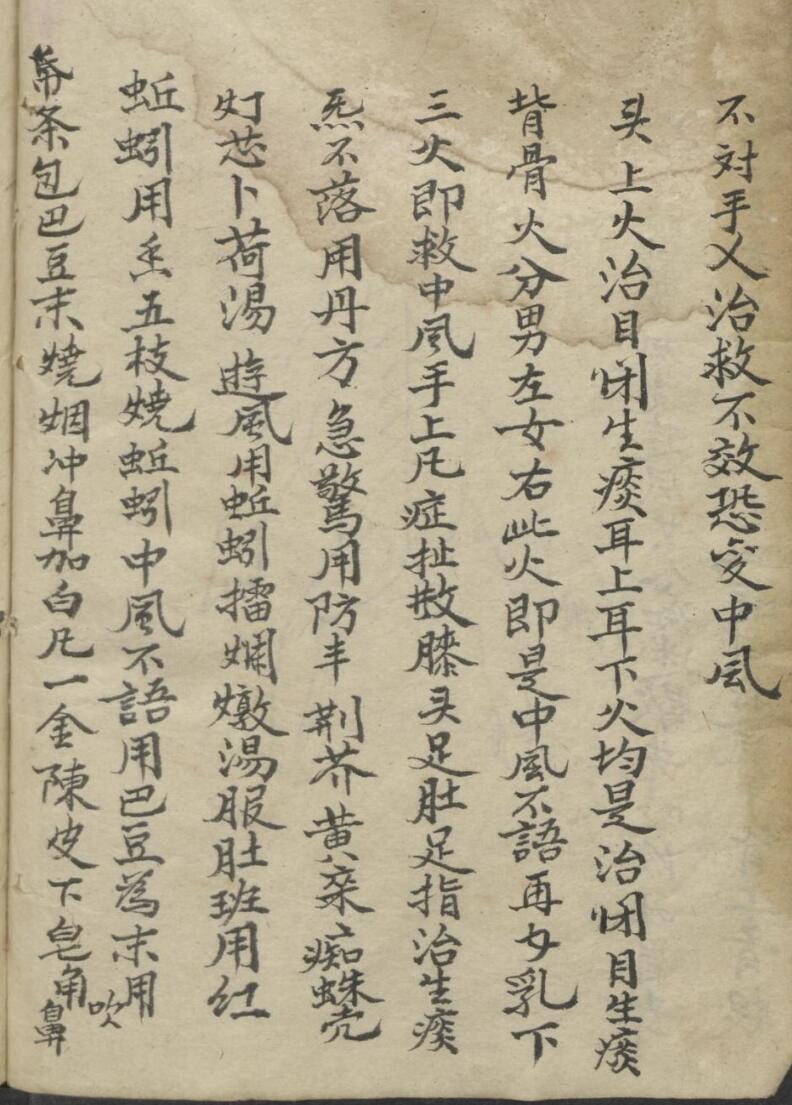 不対手乂治救不效恐变中风
头上火治目闭生痰耳上耳下火均是治闭目生痰
背骨火分男左女右此火即是中風不語再女乳下
三火即救中风手上凡症扯散膝头足肚足指治生痰
炁不落用丹方急驚用防丰荆芥黄蜘蛛壳
灯芯卜荷湯遊風用蚯蚓擂烂燉湯服肚班用红
蚯蚓用五枝燒蚯蚓中風不語用巴豆為末用
条包巴豆末燒烟冲鼻加白凡一金陳皮下皂角
吹鼻